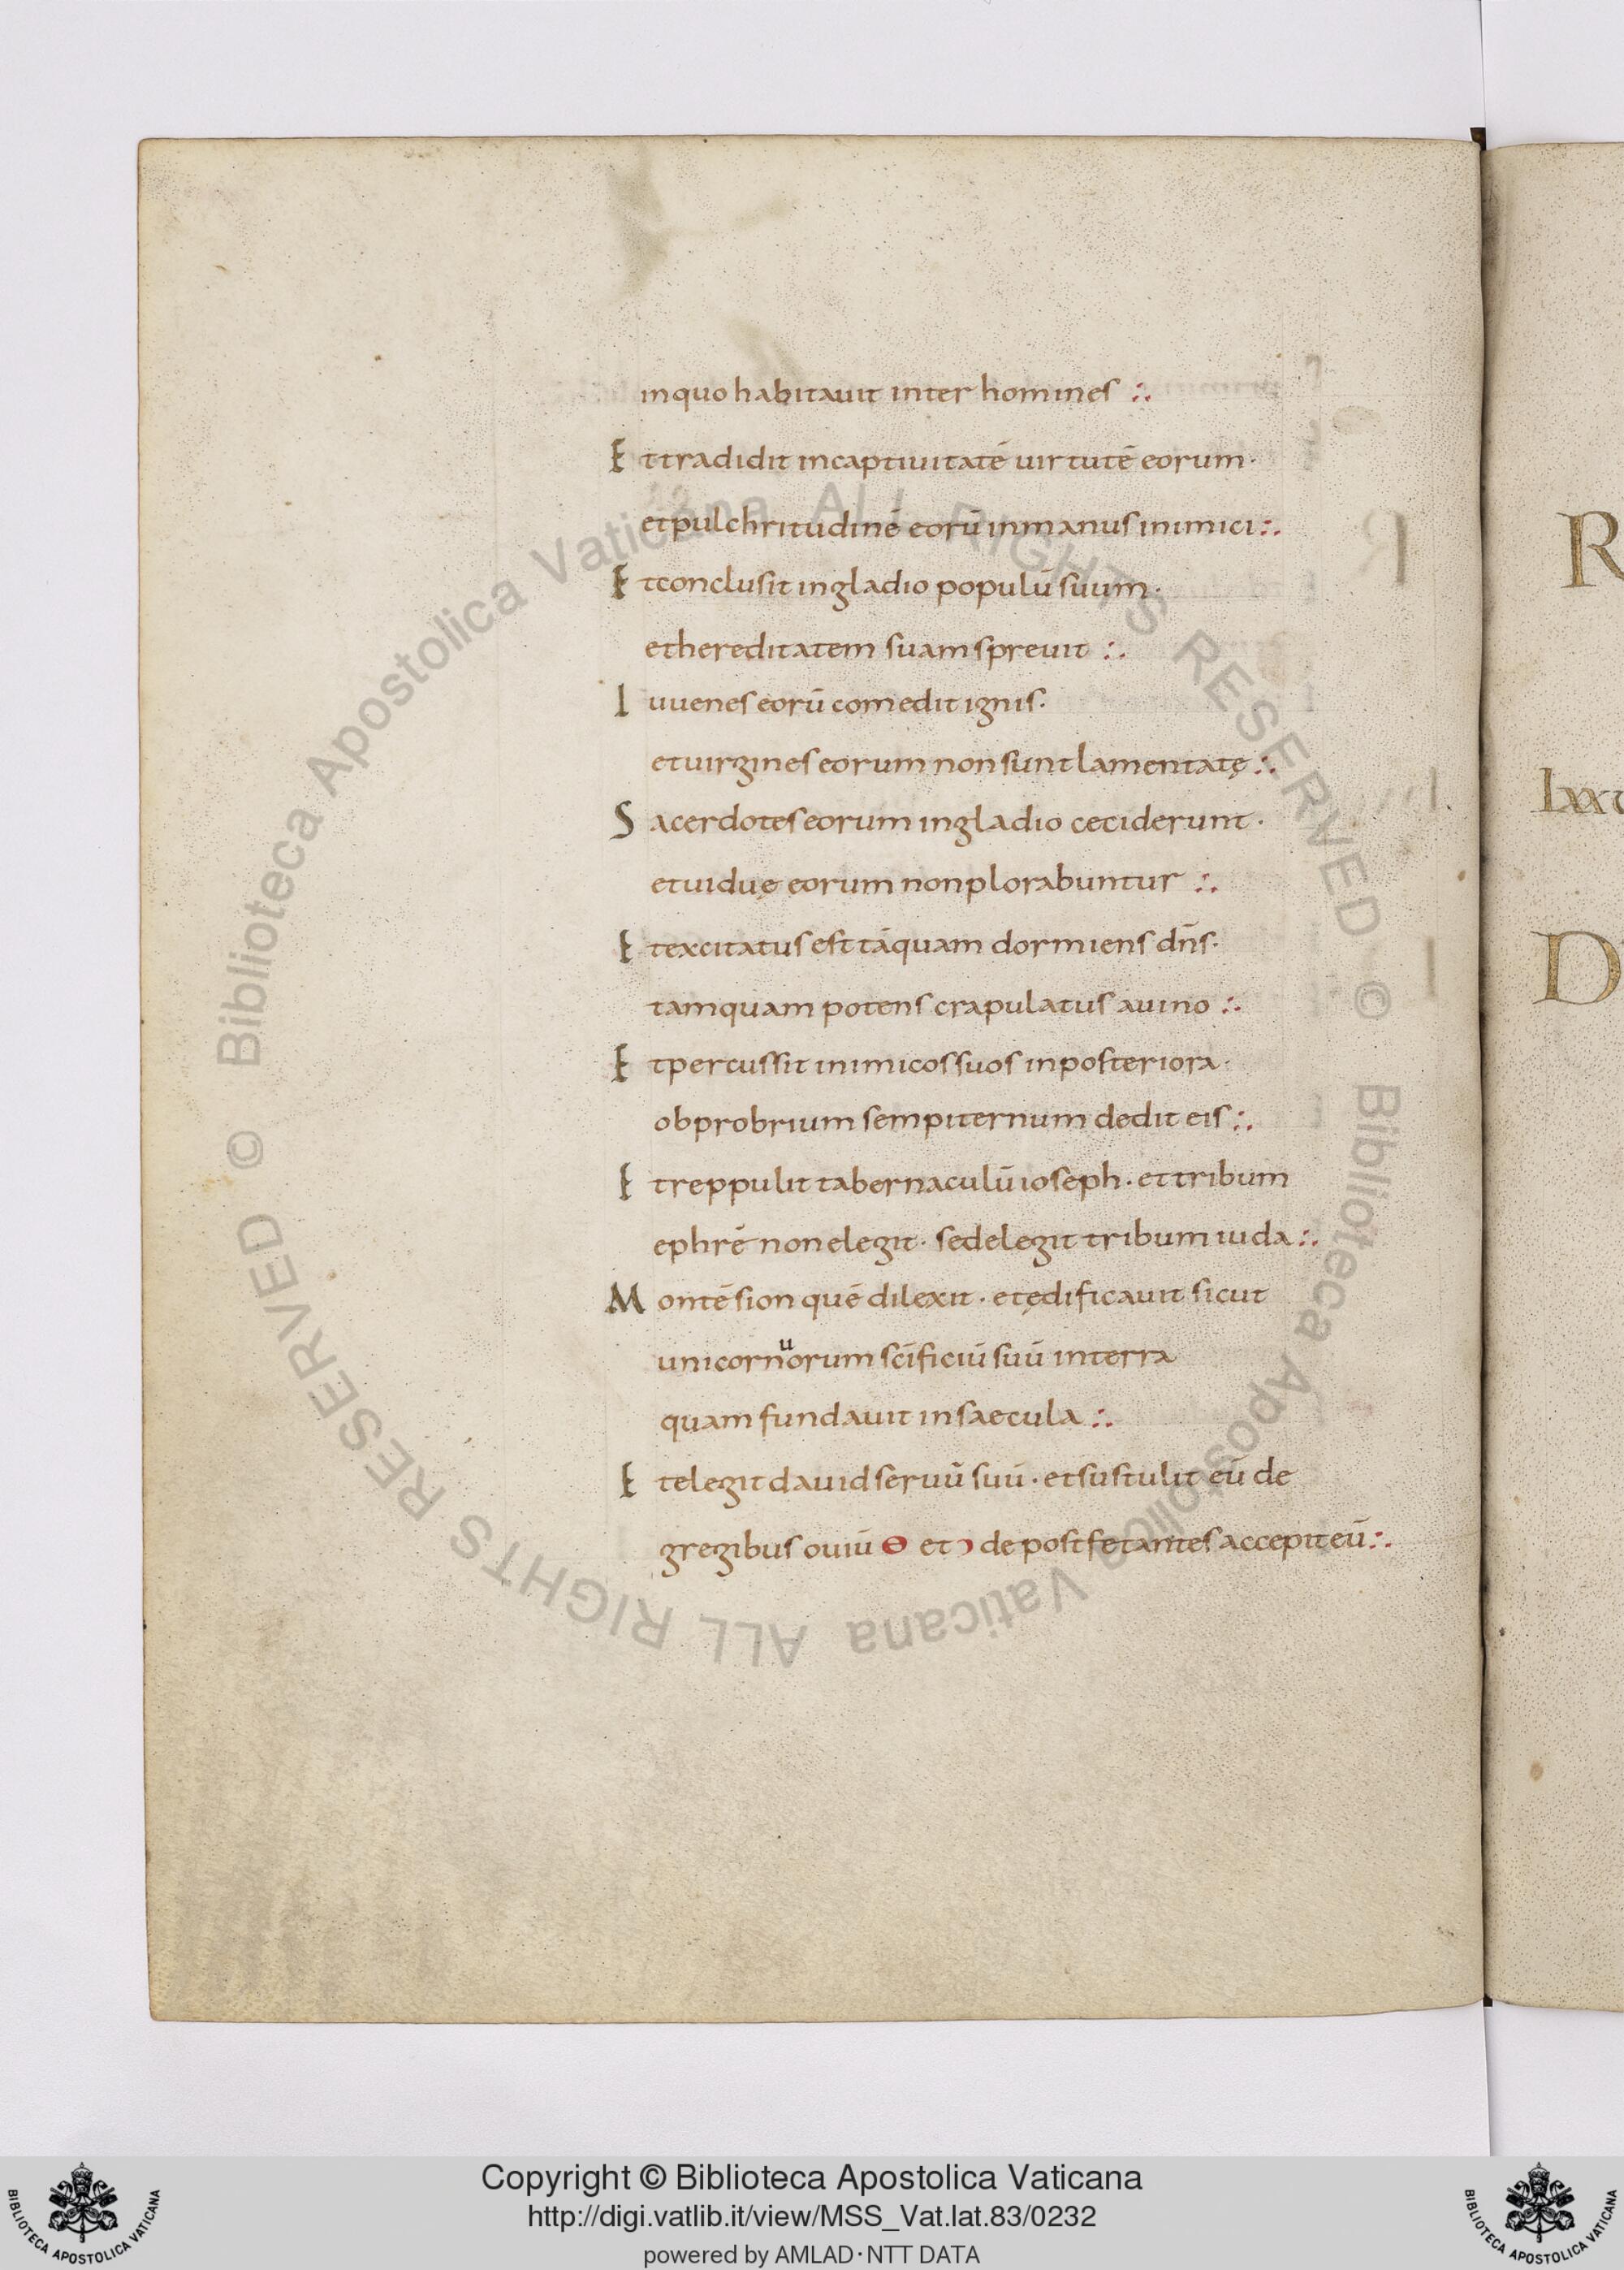 inquo habitauit inter homines ∴
Et tradidit incaptiuitatē uirtutē eorum·
et pulchritudinē eorū inmanus inimici ∴
Et conclusit ingladio populū suum·
et hereditatem suam spreuit ∴
Iuuenes eorū comedit ignis·
et uirgines eorum non sunt lamentatę ∴
Sacerdotes eorum ingladio ceciderunt·
et uiduę eorum non plorabuntur ∴
Et excitatus est tāquam dormiens dn̄s·
tamquam potens crapulatus auino ∴
Et percussit inimicos suos inposteriora·
obprobrium sempiternum dedit eis ∴
Et reppulit tabernaculū ioseph· et tribum
ephrē non elegit· sed elegit tribum iuda ∴
Montē sion quē dilexit· et ędificauit sicut
u
unicornorum sc̄ificiū suū interra
quam fundauit insaecula ∴
Et elegit dauid seruū suū· et sustulit eū de
gregibus ouiū Θ et ͻ de post fetantes accepit eū ∴
R
Lxxu
D
© Biblioteca Apostolica Vaticana ALL RIGHTS RESERVED © Biblioteca Apostolica Vaticana ALL RIGHTS RESERVED
Copyright © Biblioteca Apostolica Vaticana
http://digi.vatlib.it/view/MSS_Vat.lat.83/0232
powered by AMLAD·NTT DATA
BIBLIOTECA APOSTOLICA VATICANA
BIBLIOTECA APOSTOLICA VATICANA